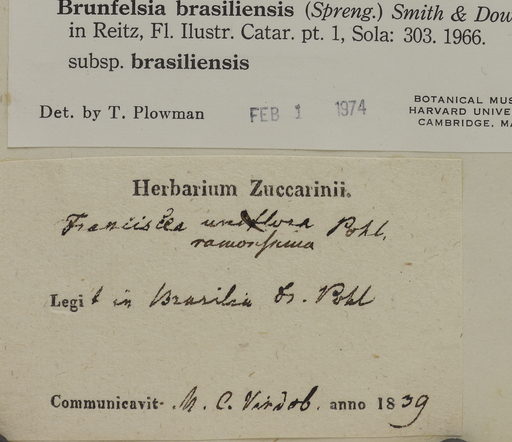 Brunfelsia brasiliensis (Spreng.) Smith & Dow
in Reitz, Fl. Ilustr. Catar. pt. 1, Sola: 303. 1966.
subsp. brasiliensis
Det. by T. Plowman FEB 1 1974
BOTANICAL MUS
HARVARD UNIVE
CAMBRIDGE, MA
Herbarium Zuccarinii.
Franciscea uniflora Pohl,
ramosissima
Legit in Brasilia Dr. Pohl
Communicavit M. C. Vindob. anno 1839